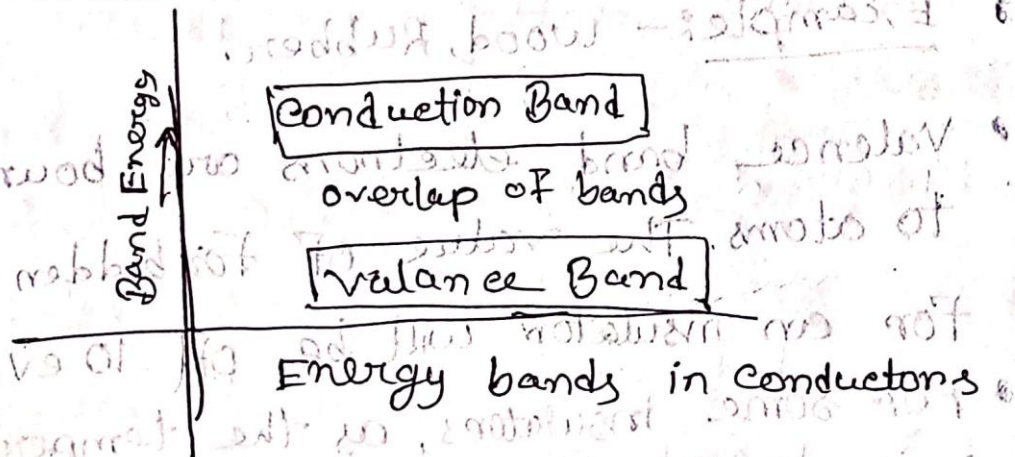 Band Energy
Conduction Band
overlap of bands
Valance Band
Energy bands in conductors